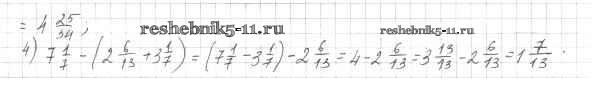 = 4 25/54 ;
reshebnik5-11.ru reshebnik5-11.ru
4) 7 1/7 - (2 6/13 + 3 1/7) = (7 1/7 - 3 1/7) - 2 6/13 = 4 - 2 6/13 = 3 13/13 - 2 6/13 = 1 7/13 .